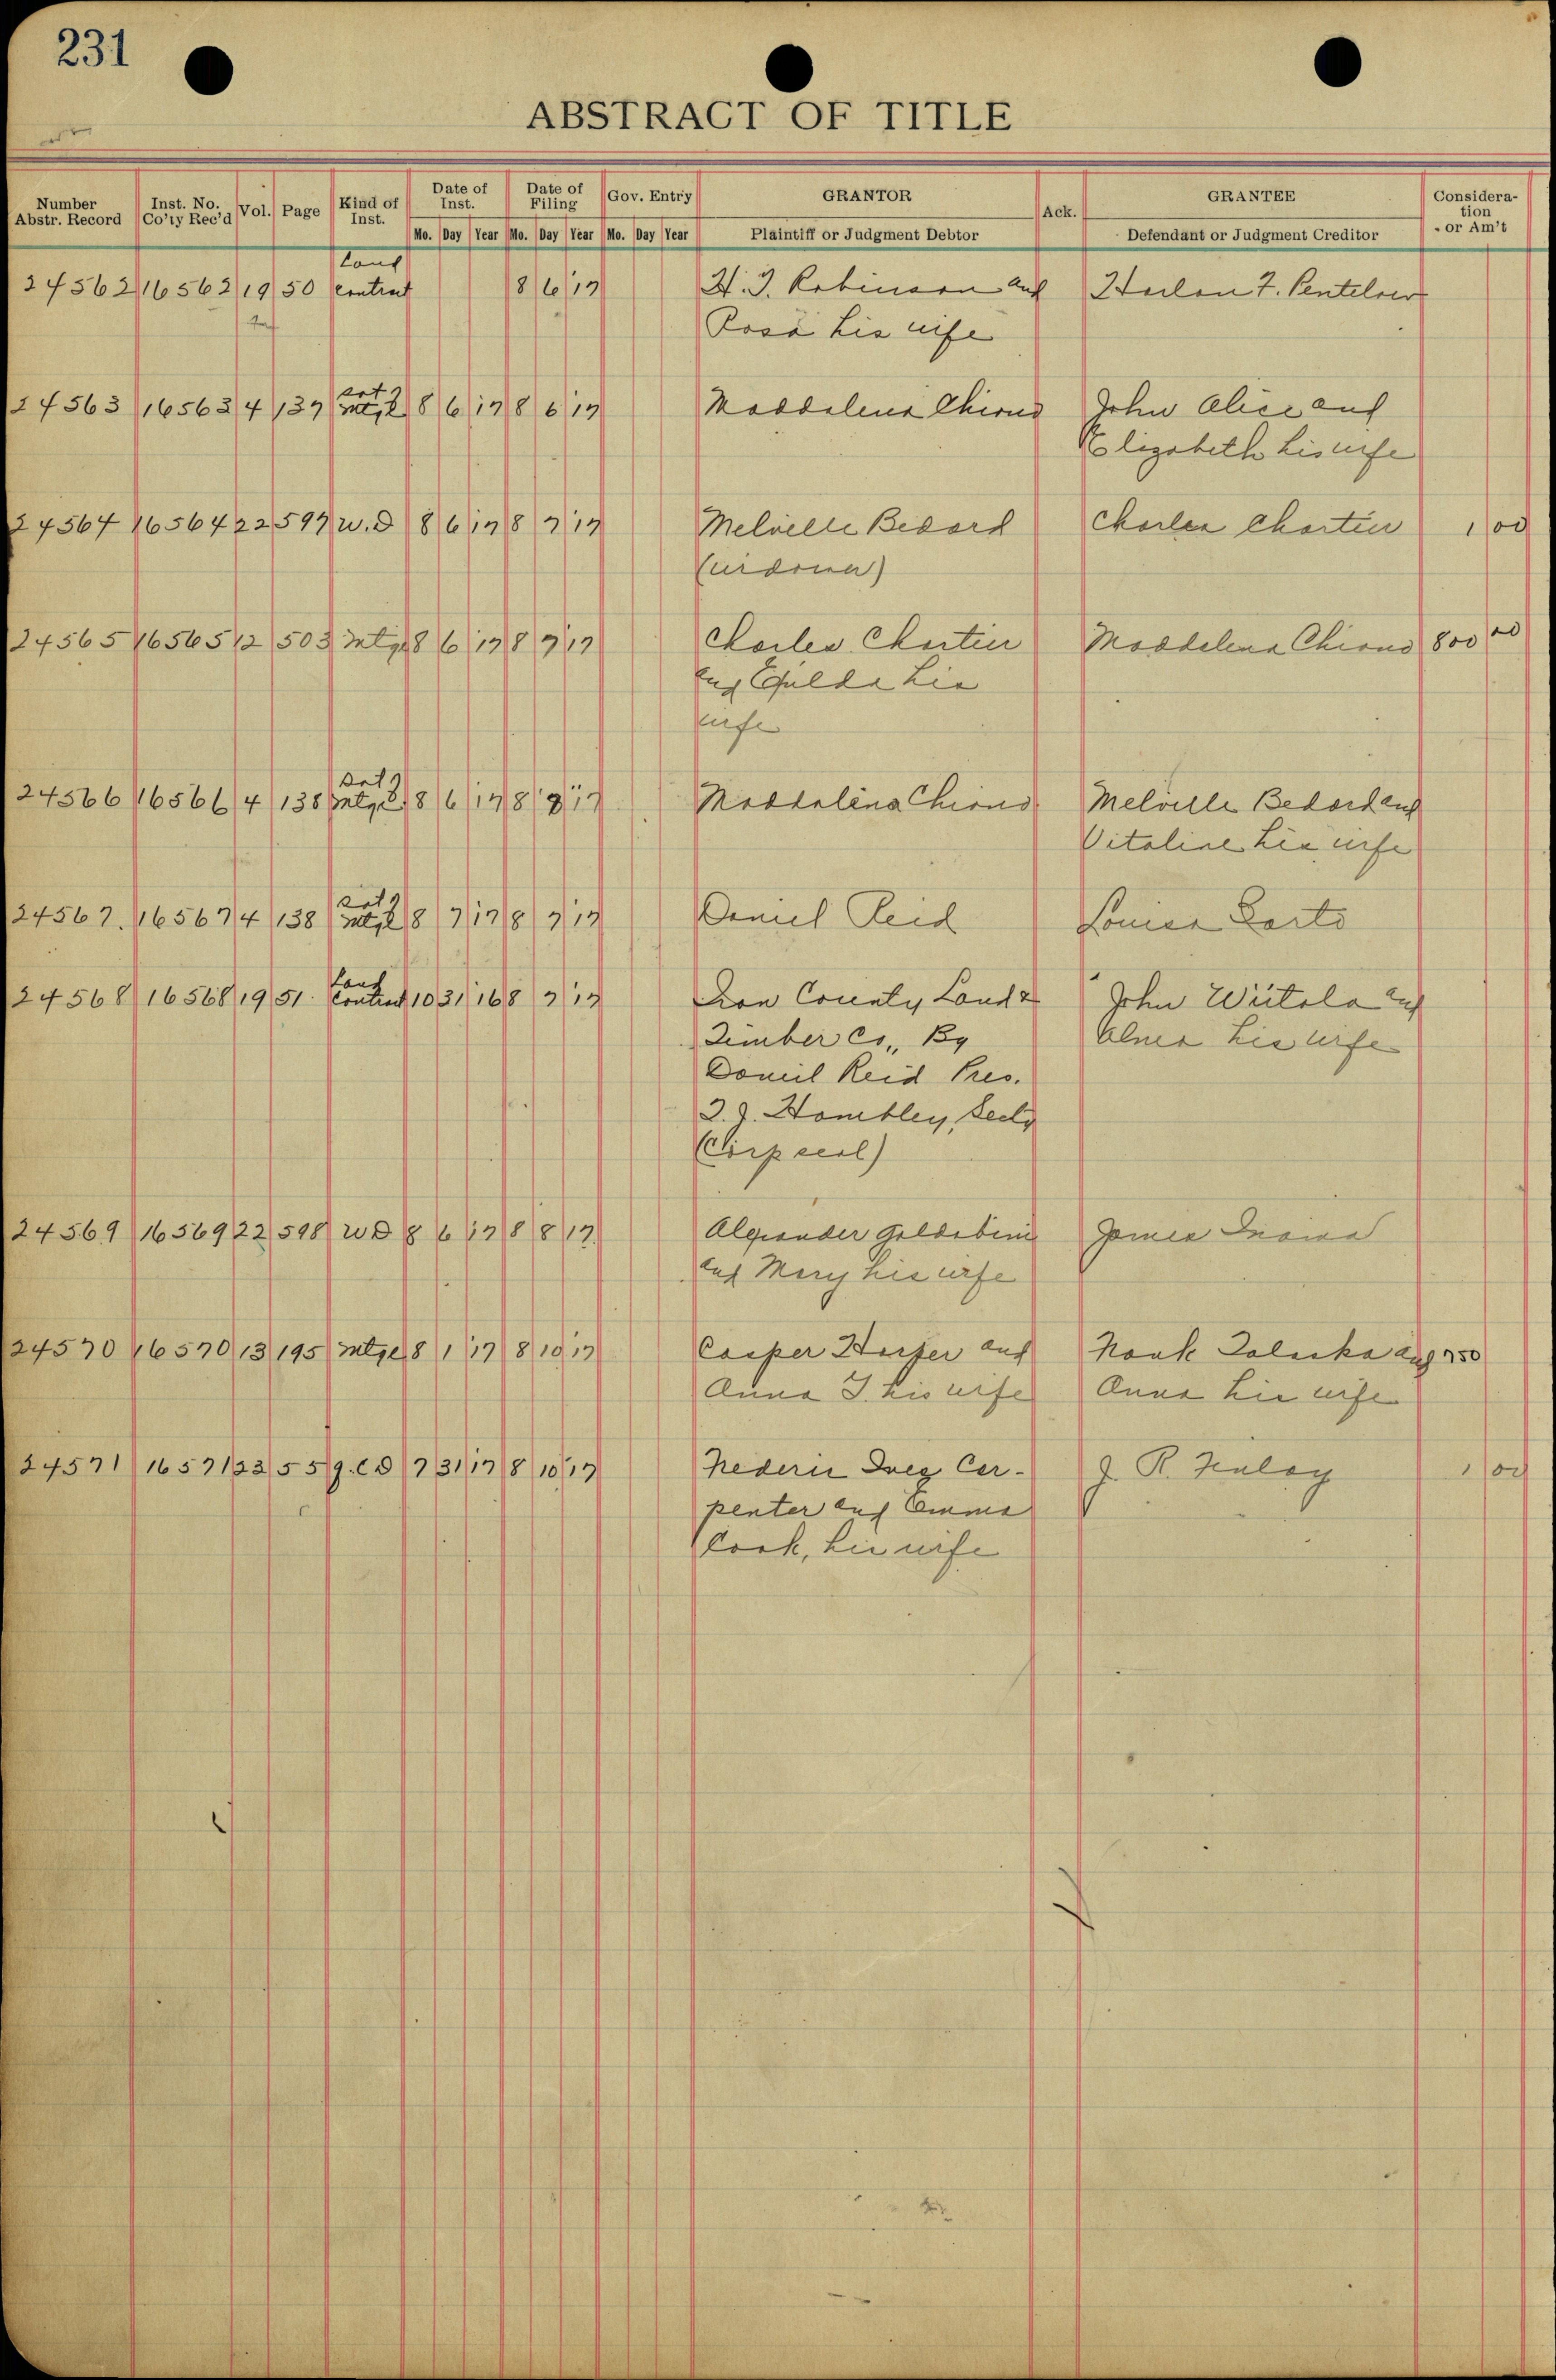 231
ABSTRACT OF TITLE
Number Abstr. Record Inst. No. Co'ty Rec'd Vol. Page Kind of Inst. Date of Inst. Date of Filing Gov. Entry GRANTOR Ack. GRANTEE Consideration or Am't
Mo. Day Year Mo. Day Year Mo. Day Year Plaintiff or Judgment Debtor Defendant or Judgment Creditor
Land
24562 16562 19 50 contract 8 6 17 H. I. Robinson and Harlan F. Pentelow
Rosa his wife
Sat of
24563 16563 4 137 Mtge 8 6 17 8 6 17 Maddalena Chiono John Alice and
Elizabeth his wife
24564 16564 22 597 W.D 8 6 17 8 7 17 Melville Bedard Charles Chartier 1 00
(widower)
24565 16565 12 503 Mtge 8 6 17 8 7 17 Charles Chartier Maddelena Chiono 800 00
and Exilda his
wife
Sat of
24566 16566 4 138 Mtge 8 6 17 8 7 17 Maddalena Chiono Melville Bedard and
Vitaline his wife
Sat of
24567. 16567 4 138 Mtge 8 7 17 8 7 17 Daniel Reid Louisa
Land
24568 16568 19 51. Contract 10 31 16 8 7 17 Iron County Land & John Wiitala and
Timber Co., By his wife
Daniel Reid Pres.
Hambley, Secty
(Corp seal)
24569 16569 22 598 WD 8 6 17 8 8 17 Alexander Goldobini James
and Mary his wife
24570 16570 13 195 Mtge 8 1 17 8 10 17 Casper Harter and Hank Zaleska and 750
Anna I. his wife Anna his wife
24571 16571 23 55 Q.C.D 7 31 17 8 10 17 Ives Car- J. R. Finlay 1 00
penter and Emma
Cook, his wife